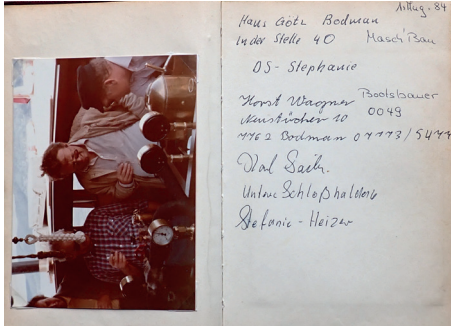 1. Aug. 84
Hans Götz Bodman
In der Stelle 40 Masch'Bau
DS - Stephanie
Horst Wagner Bootsbauer
10 0049
7762 Bodman 07773/5477
Karl
Untere Schloßhalde
Stefanie - Heizer